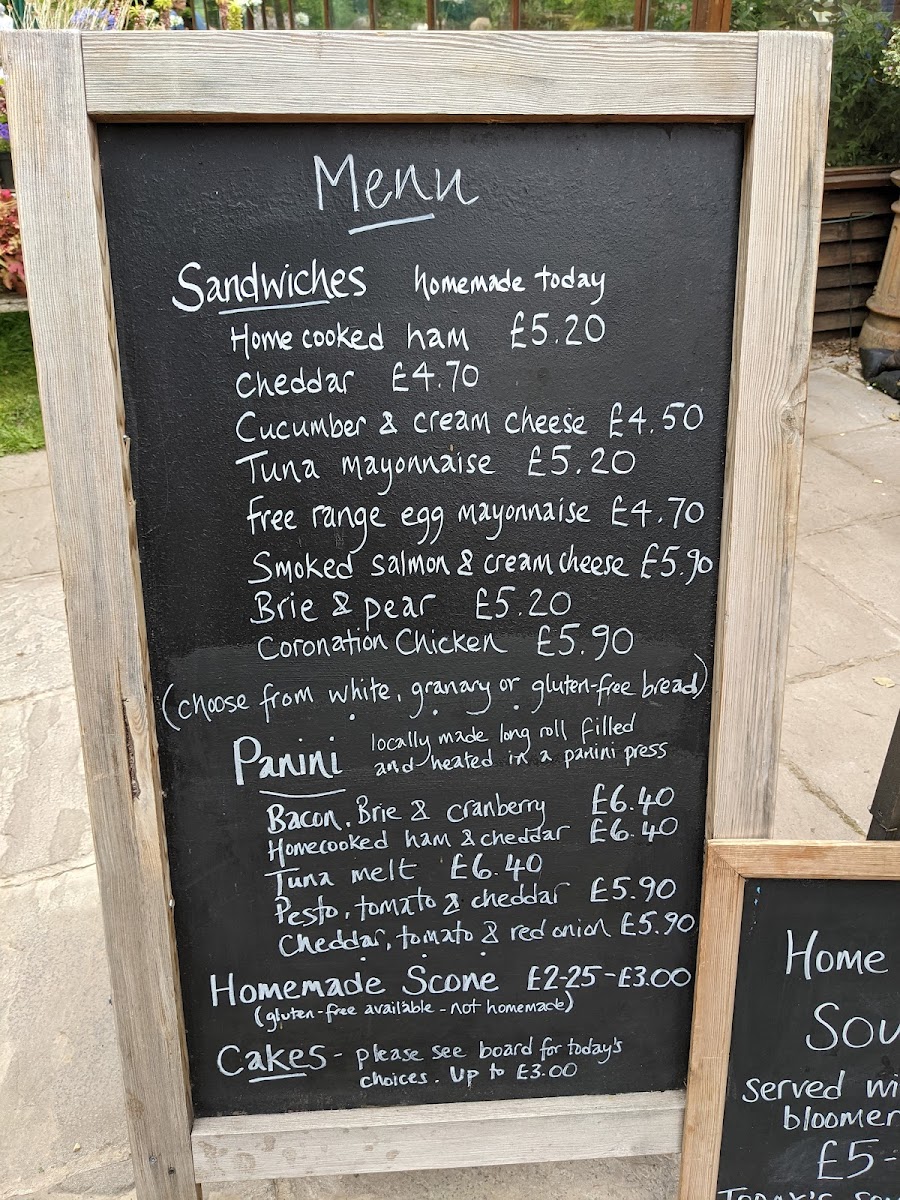 Menu
Sandwiches homemade today
Home cooked ham £5.20
Cheddar £4.70
Cucumber & cream cheese £4.50
Tuna mayonnaise £5.20
Free range egg mayonnaise £4.70
Smoked salmon & cream cheese £5.90
Brie & pear £5.20
Coronation Chicken £5.90
(choose from white, granary or gluten-free bread)
Panini locally made long roll filled
and heated in a panini press
Bacon, Brie & cranberry £6.40
Homecooked ham & cheddar £6.40
Tuna melt £6.40
Pesto, tomato & cheddar £5.90
Cheddar, tomato & red onion £5.90
Homemade Scone £2-25-£3.00
(gluten-free available - not homemade)
Cakes - please see board for today's
choices. Up to £3.00
Home
Sou
served wi
bloomer
£5-
Today's sou